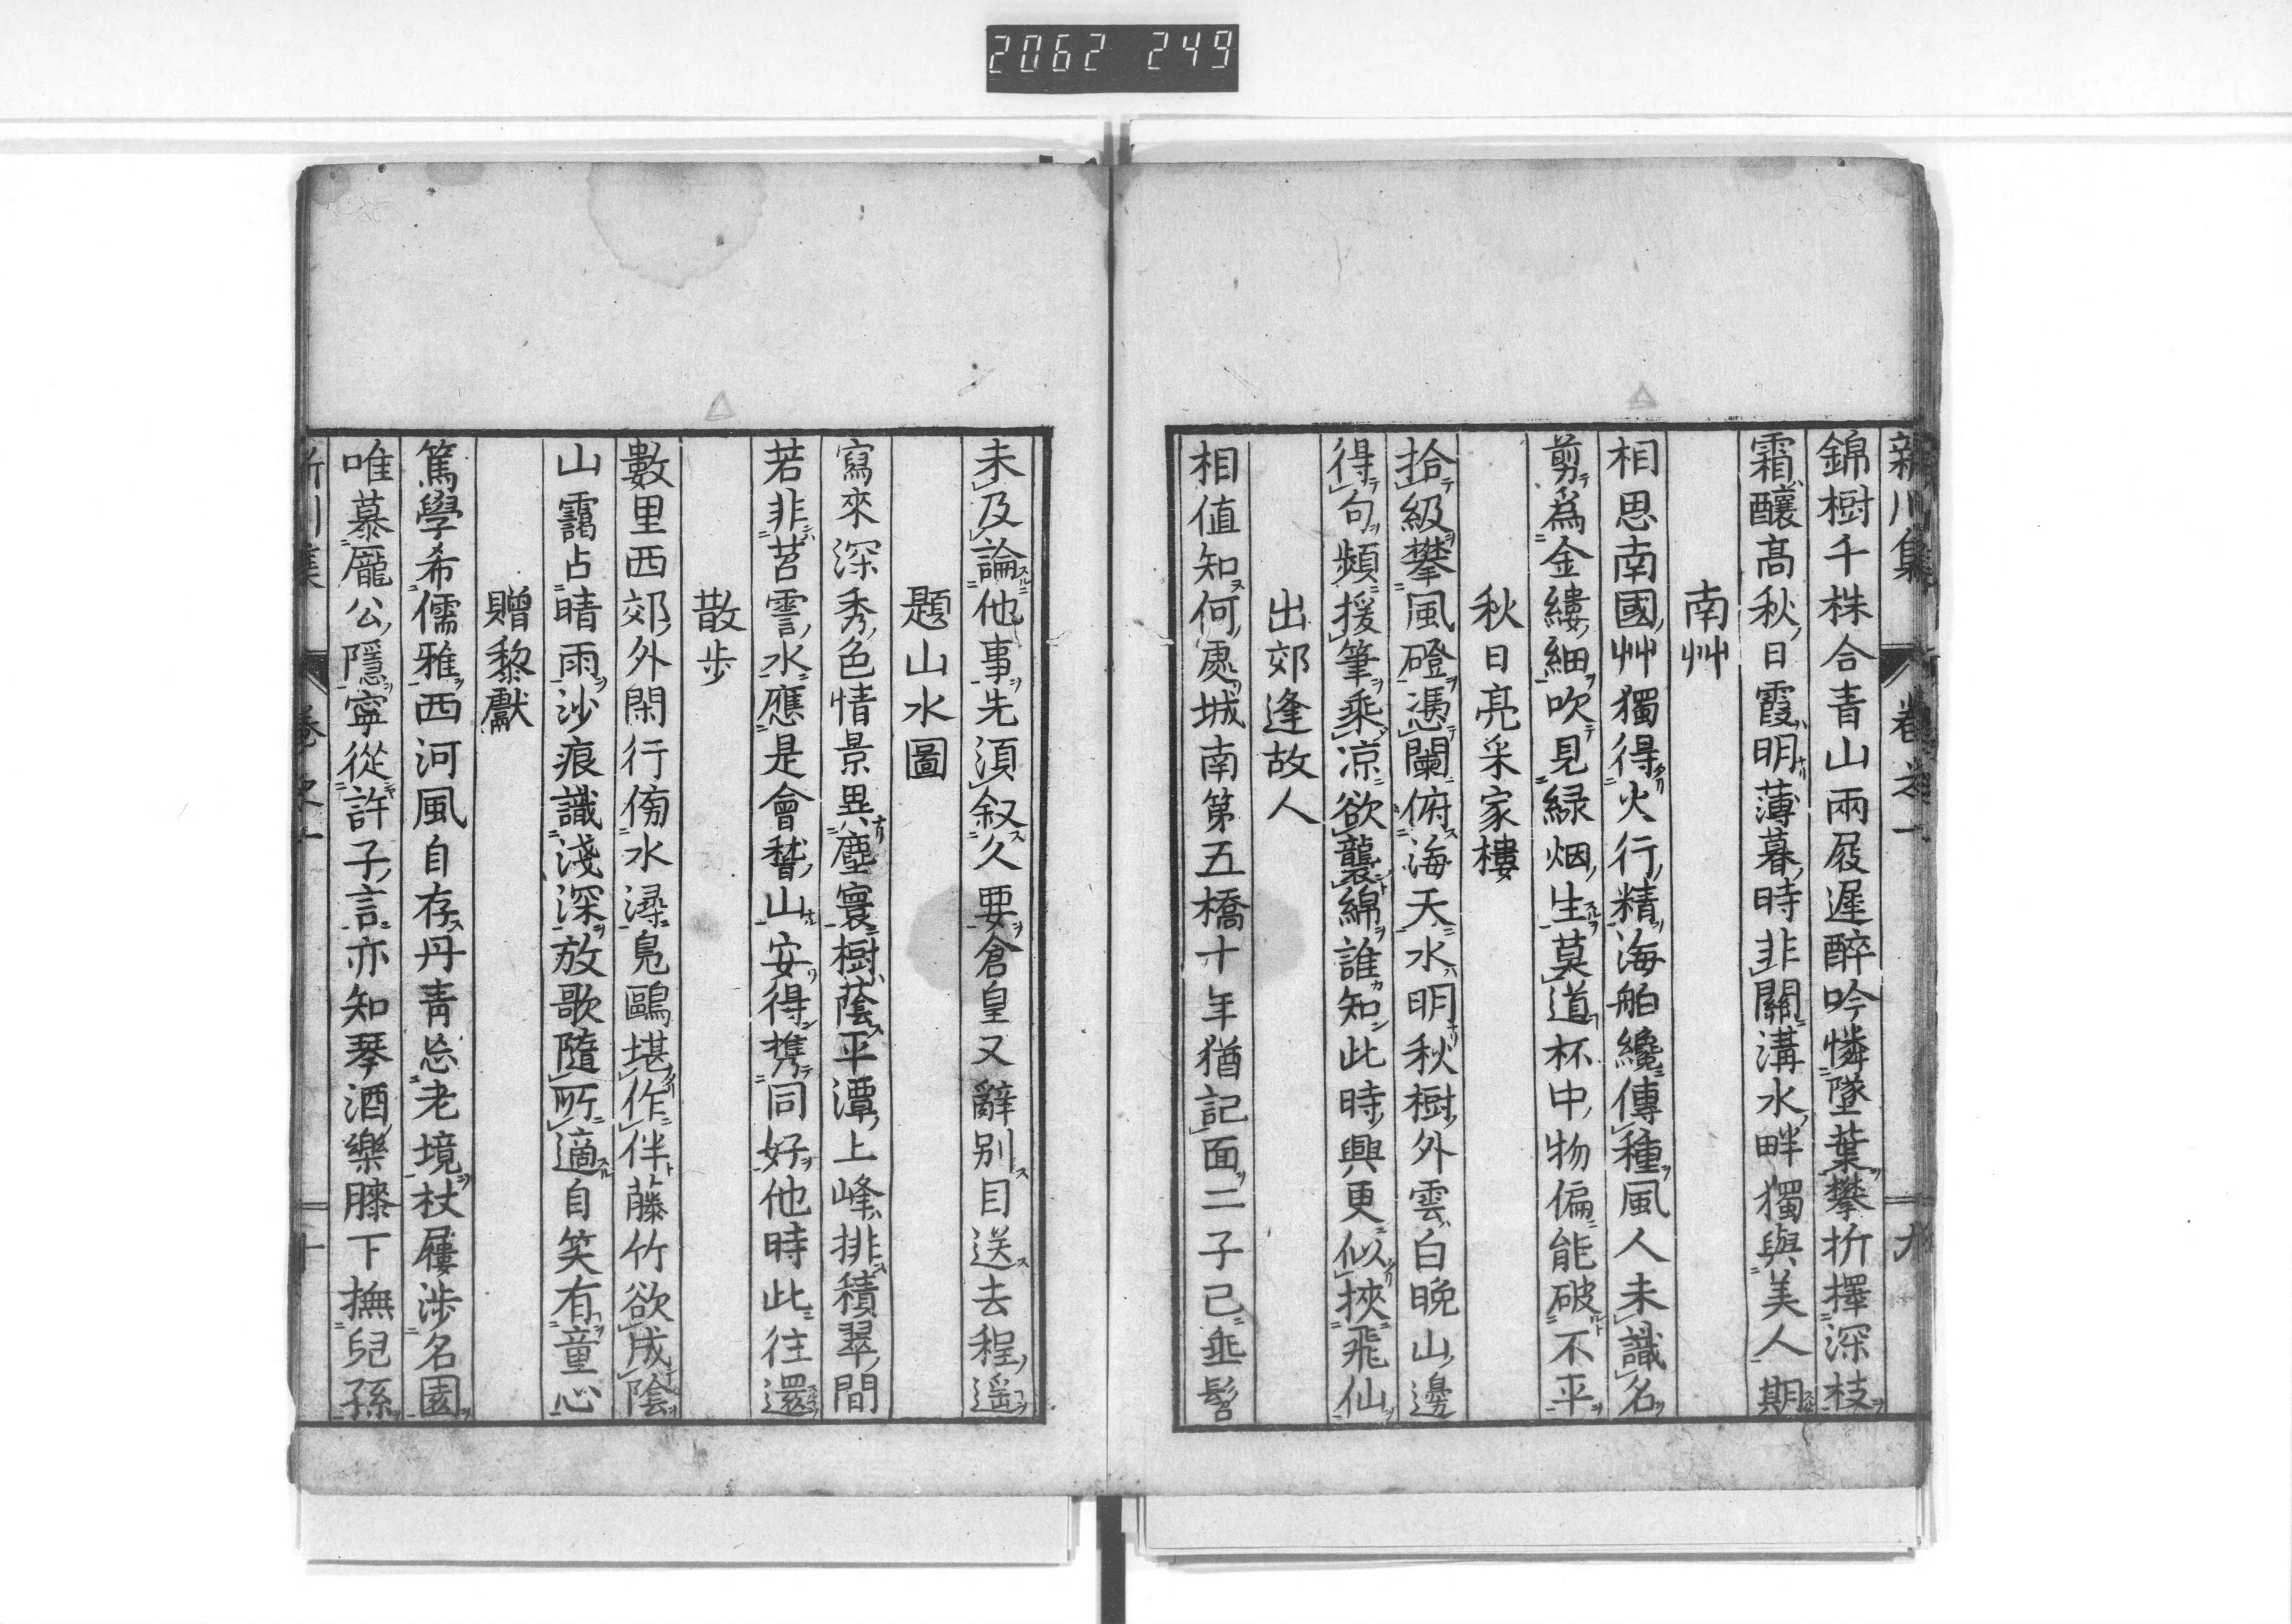 2062 249
新川集 卷之一 九
錦樹千株合青山兩屐遲醉吟憐墜葉攀折擇深枝
霜釀高秋日霞明薄暮時非關溝水畔獨與美人期
南艸
相思南國艸獨得火行精海舶纔傳種風人未識名
剪爲金縷細吹見緑烟生莫道杯中物偏能破不平
秋日亮采家樓
拾級攀風磴憑闌俯海天水明秋樹外雲白晚山邊
得句頻援筆乘凉欲襲綿誰知此時興更似挾飛仙
出郊逢故人
相値知何處城南第五橋十年猶記面二子已垂髫
未及論他事先須叙久要倉皇又辭别目送去程遥
題山水圖
寫來深秀色情景異塵寰樹蔭平潭上峰排積翠間
若非苕霅水應是會嵇山安得携同好他時此往還
散步
數里西郊外閑行傍水潯鳬鷗堪作伴藤竹欲成陰
山靄占晴雨沙痕識淺深放歌隨所適自笑有童心
贈黎獻
篤學希儒雅西河風自存丹青忘老境杖屨涉名園
唯慕龐公隱寧從許子言亦知琴酒樂膝下撫兒孫